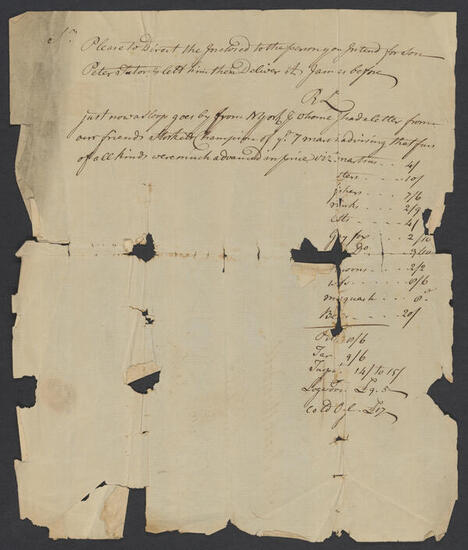 Sr.
Please to Direct the Inclosed to the person you Intend for Son
Peter & lett him then Deliver it. James before
RL
just now a sloop goes by from N York & whome I had a letter from
our friends Storke & Champion of ye. 7 march advising that furs
of all kinds were much advanced in price viz martins - - 4/
tters - - - 10/
fishers - - - 7/6
mink - - - 2/9
Catts - - - 4/
Grey fox - - - 2/10
Do - - - 3/10
coons - - - 2/2
- - - 8/6
musquash - - 8d
Be - - - 20/
8/6
Tar 9/6
Turpe 14/ to 15/
Logwood £9.5
Cod Oyl £17